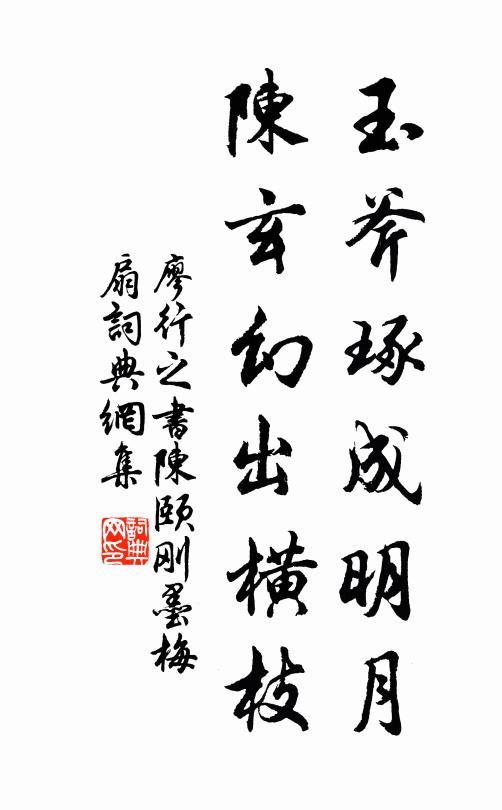 玉斧琢成明月
陳玄幻出橫枝
廖行之書陳頤剛墨梅
扇詞典網集
詞典
网印